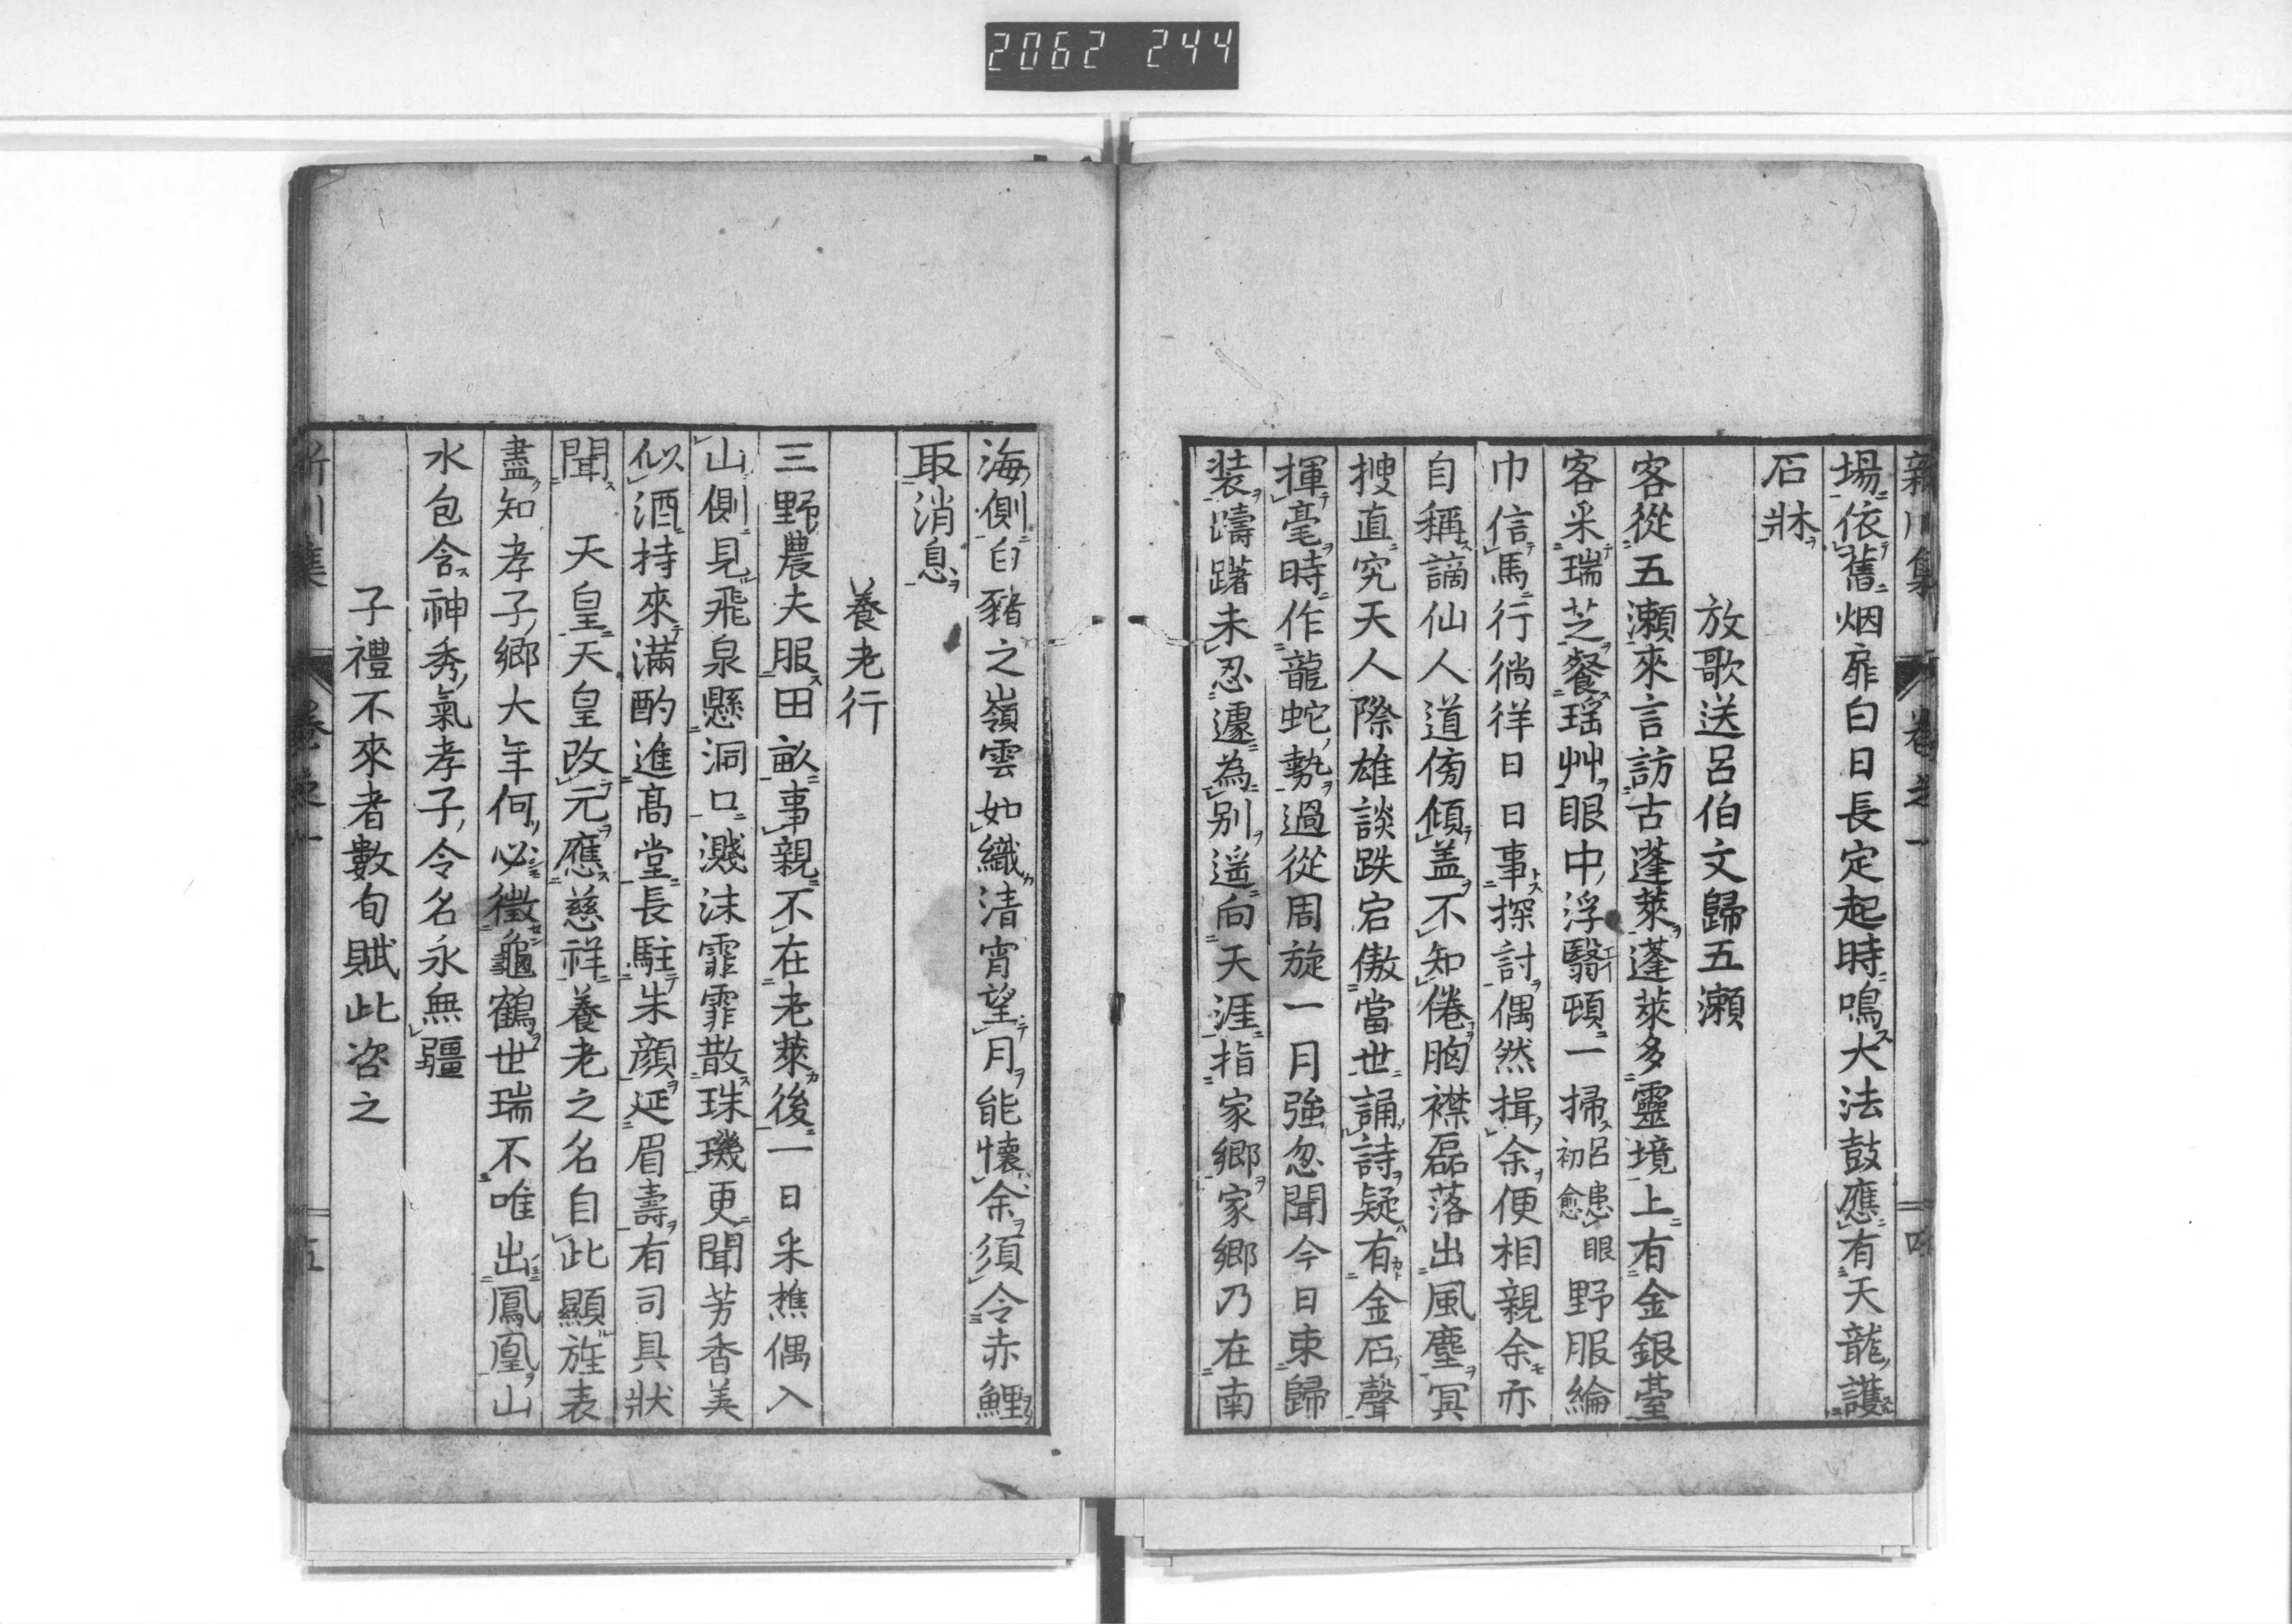 2062 244
新川集 卷之一 四
場依舊烟扉白日長定起時鳴大法鼓應有天龍護
石牀
放歌送呂伯文歸五瀬
客從五瀬來言訪古蓬萊蓬萊多靈境上有金銀臺
客采瑞芝餐瑶艸眼中浮翳頓一掃呂患眼初愈野服綸
巾信馬行徜徉日日事探討偶然揖余便相親余亦
自稱謫仙人道傍傾盖不知倦胸襟磊落出風塵冥
搜直究天人際雄談跌宕傲當世誦詩疑有金石聲
揮毫時作龍蛇勢過從周旋一月強忽聞今日束歸
装躊躇未忍遽為別遥向天涯指家郷家郷乃在南
海側白豬之嶺雲如織清宵望月能懷余須令赤鯉
取消息
養老行
三野農夫服田畝事親不在老萊後一日采樵偶入
山側見飛泉懸洞口濺沫霏霏散珠璣更聞芳香美
似酒持來滿酌進髙堂長駐朱顔延眉壽有司具狀
聞　天皇天皇改元應慈祥養老之名自此顯旌表
盡知孝子郷大年何必徵龜鶴世瑞不唯出鳳凰山
水包含神秀氣孝子令名永無疆
子禮不來者數旬賦此咨之
新川集 卷之一 五